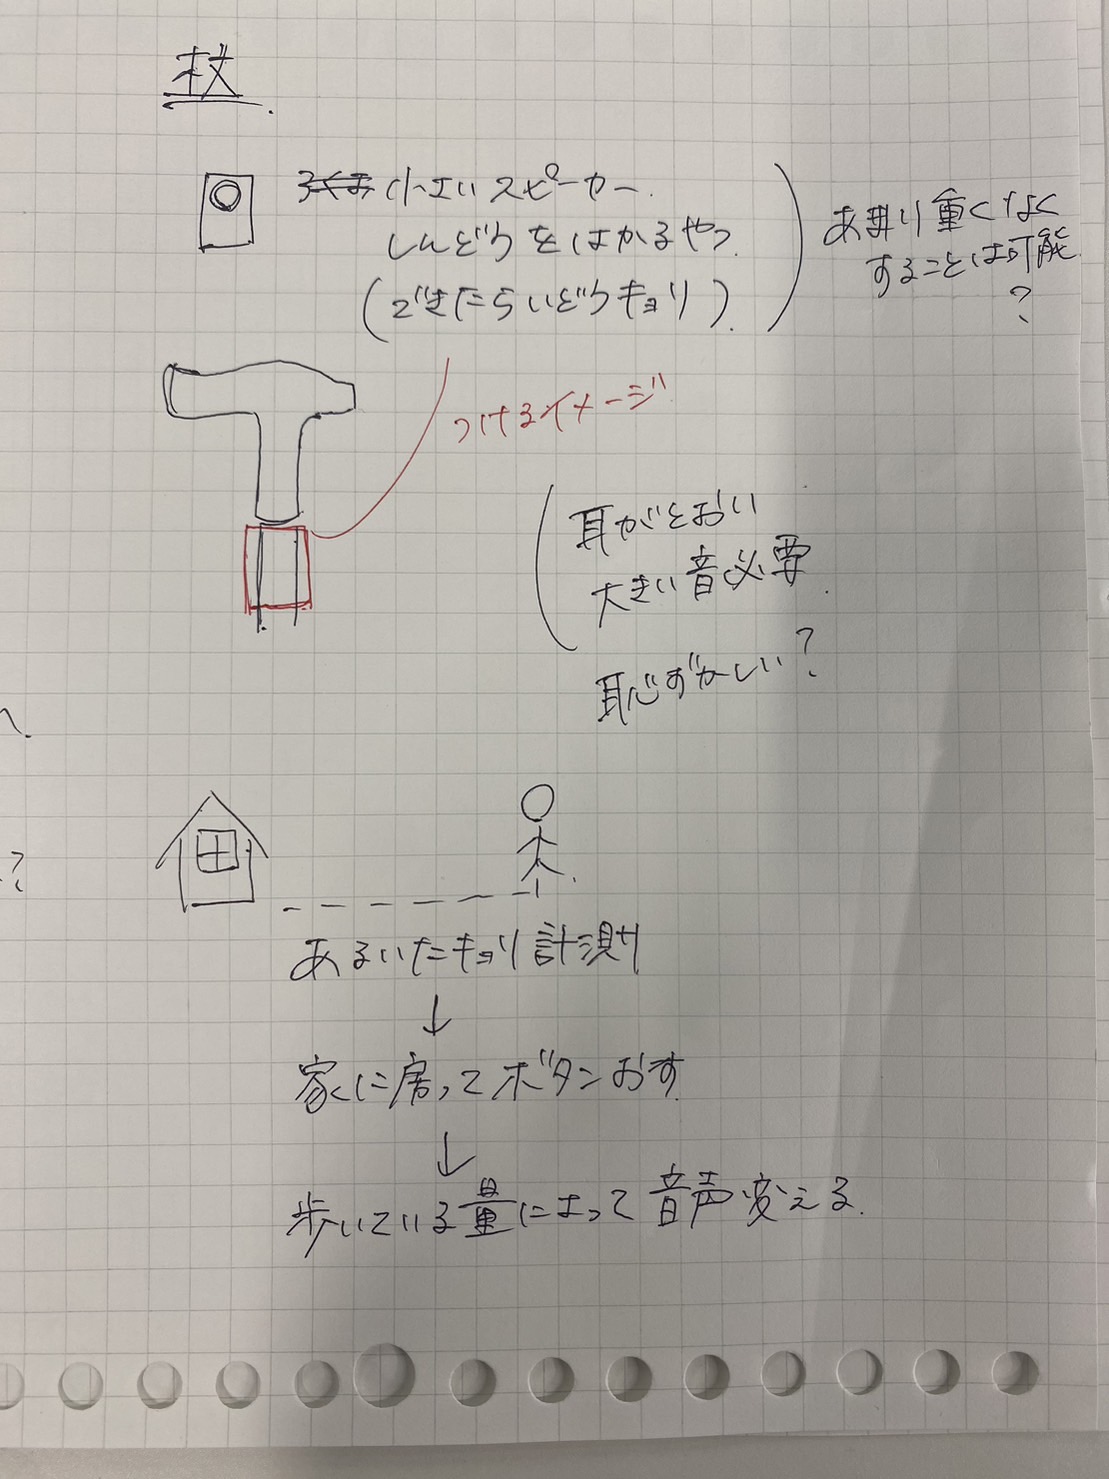 杖
小さいスピーカー.
しんどうをはかるやつ
(できたらいどうキョリ).
あまり重くなく
することは可能
?
つけるイメージ
耳がとおい
大きい音必要.
恥ずかしい?
あるいたキョリ計測
↓
家に戻ってボタンおす
↓
歩いている量によって音声変える.
?